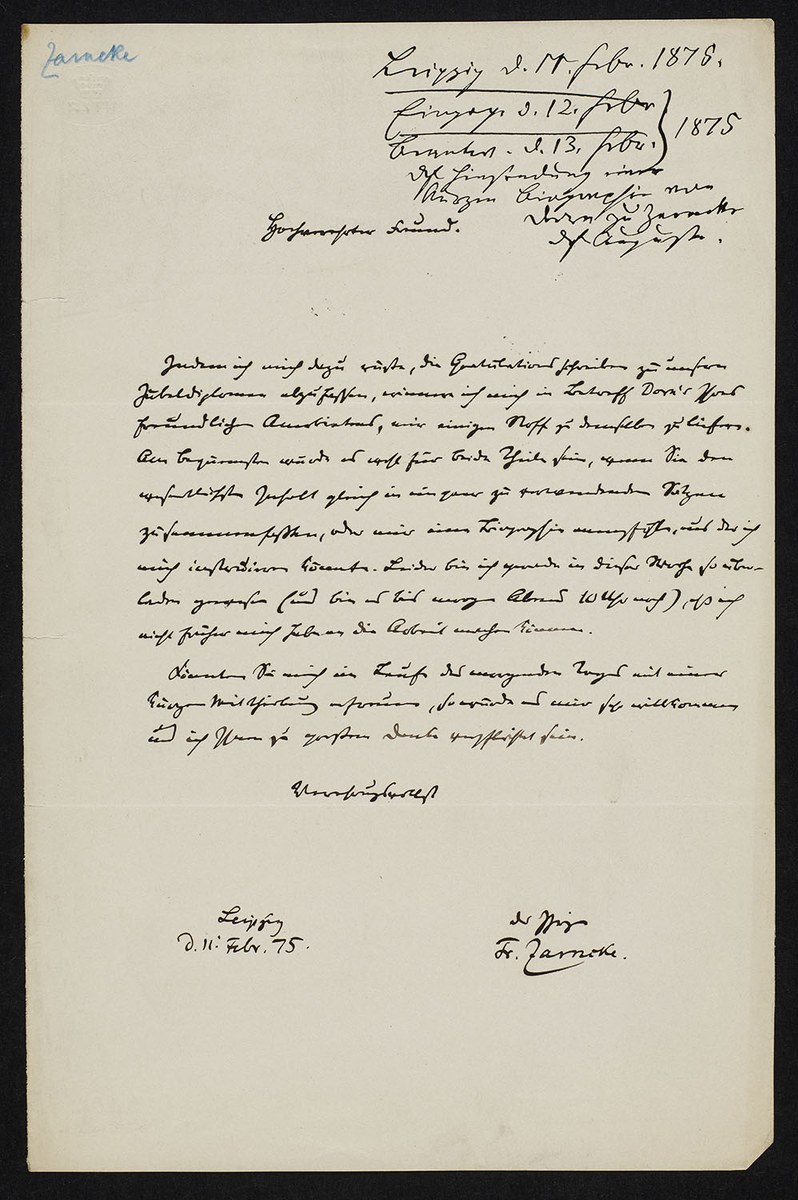 Zarncke
Leipzig d. 11. Febr. 1875.
Eingeg. d. 12. Febr.
Beantw. d. 13. Febr. } 1875
durch Einsendung einer
kurzen Biographie von
Dorn zu Zarncke
Hochverehrter Freund.
Indem ich mich dazu rüste, die Gratulationsschreiben zu unsern
Jubeldiplomen abzufassen, erinnere ich mich in Betreff Dorn's Ihres
freundlichen Anerbietens, mir einigen Stoff zu demselben zu liefern.
Am bequemsten würde es wohl für beide Theile sein, wenn Sie den
wesentlichsten Inhalt gleich in ein paar zu verwendenden Sätzen
zusammenfaßten, oder mir eine Biographie, aus der ich
mich instruieren könnte. Leider bin ich gerade in dieser Woche so über-
laden gewesen (und bin es bis morgen Abend 10 Uhr noch), daß ich
nicht früher mich habe an die Arbeit machen können.
Könnten Sie mich im Laufe des morgenden Tages mit einer
kurzen Mittheilung erfreuen, so würde es mir sehr willkommen
und ich Ihnen zu großem Danke verpflichtet sein.
Verehrungsvollst
Leipzig
D. 11. Febr. 75.
der Ihrige
Fr. Zarncke.